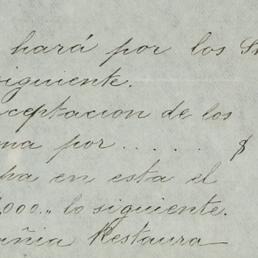 hará por los S
siguiente.
ceptacion de los
ma por . . . . . $
ha en esta el
,000 „ lo siguiente.
añia Restaura